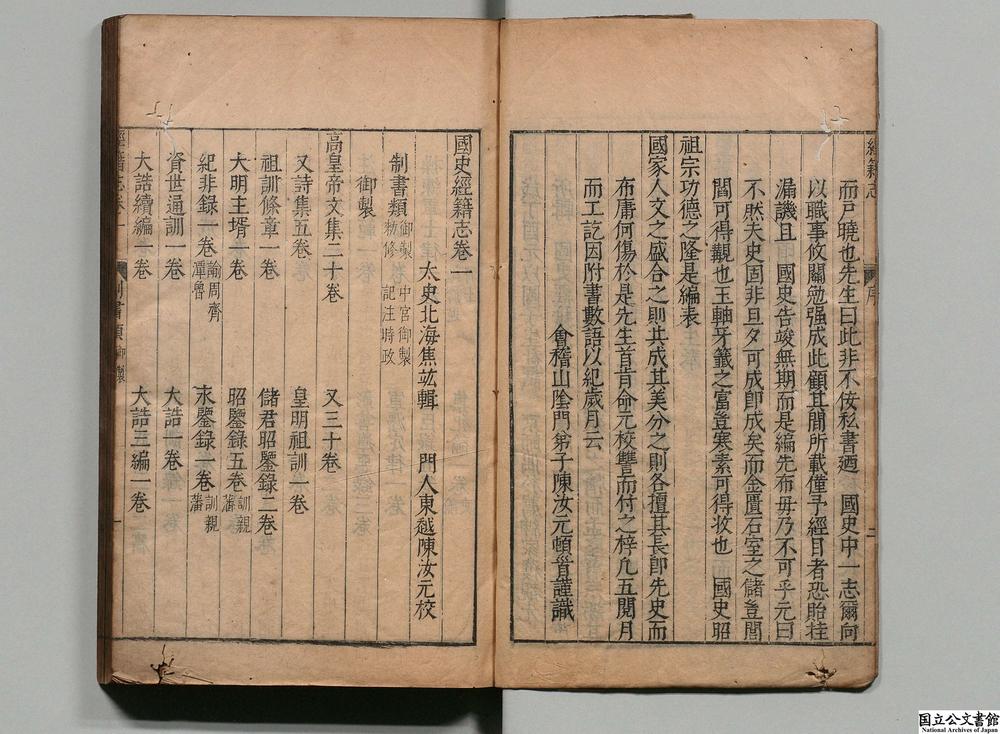 經籍志
序
二
而戸曉也先生曰此非不佞私書廼　國史中一志爾向
以職事攸關勉强成此顧其間所載僅予經目者恐貽挂
漏譏且　國史告竣無期而是編先布毋乃不可乎元曰
不然夫史固非旦夕可成卽成矣而金匱石室之儲豈閭
閻可得觀也玉軸牙籤之富豈寒素可得收也　國史昭
祖宗功德之隆是編表
國家人文之盛合之則共成其美分之則各擅其長卽先史而
布庸何傷於是先生首肯命元校讐而付之梓凡五閱月
而工訖因附書數語以紀歲月云
會稽山陰門弟子陳汝元頓首謹識
國史經籍志卷一
太史北海焦竑輯　門人東越陳汝元校
制書類 御製 中宮御製
勑修 記注時政
御製
高皇帝文集二十卷　又三十卷
又詩集五卷　皇明祖訓一卷
祖訓條章一卷　儲君昭鑒錄二卷
大明主壻一卷　昭鑒錄五卷 訓親
藩
紀非錄一卷 諭周齊
潭魯　永鑒錄一卷 訓親
藩
資世通訓一卷　大誥一卷
大誥續編一卷　大誥三編一卷
經籍志卷一
制書類 御製
一
国立公文書館
National Archives of Japan